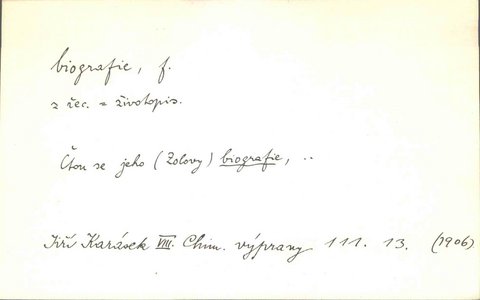 biografie, f.
z řec. = životopis.
Čtou se jeho (Zolovy) biografie, ..
Jiří Karásek VIII. Chim. výpravy 111. 13. (1906)